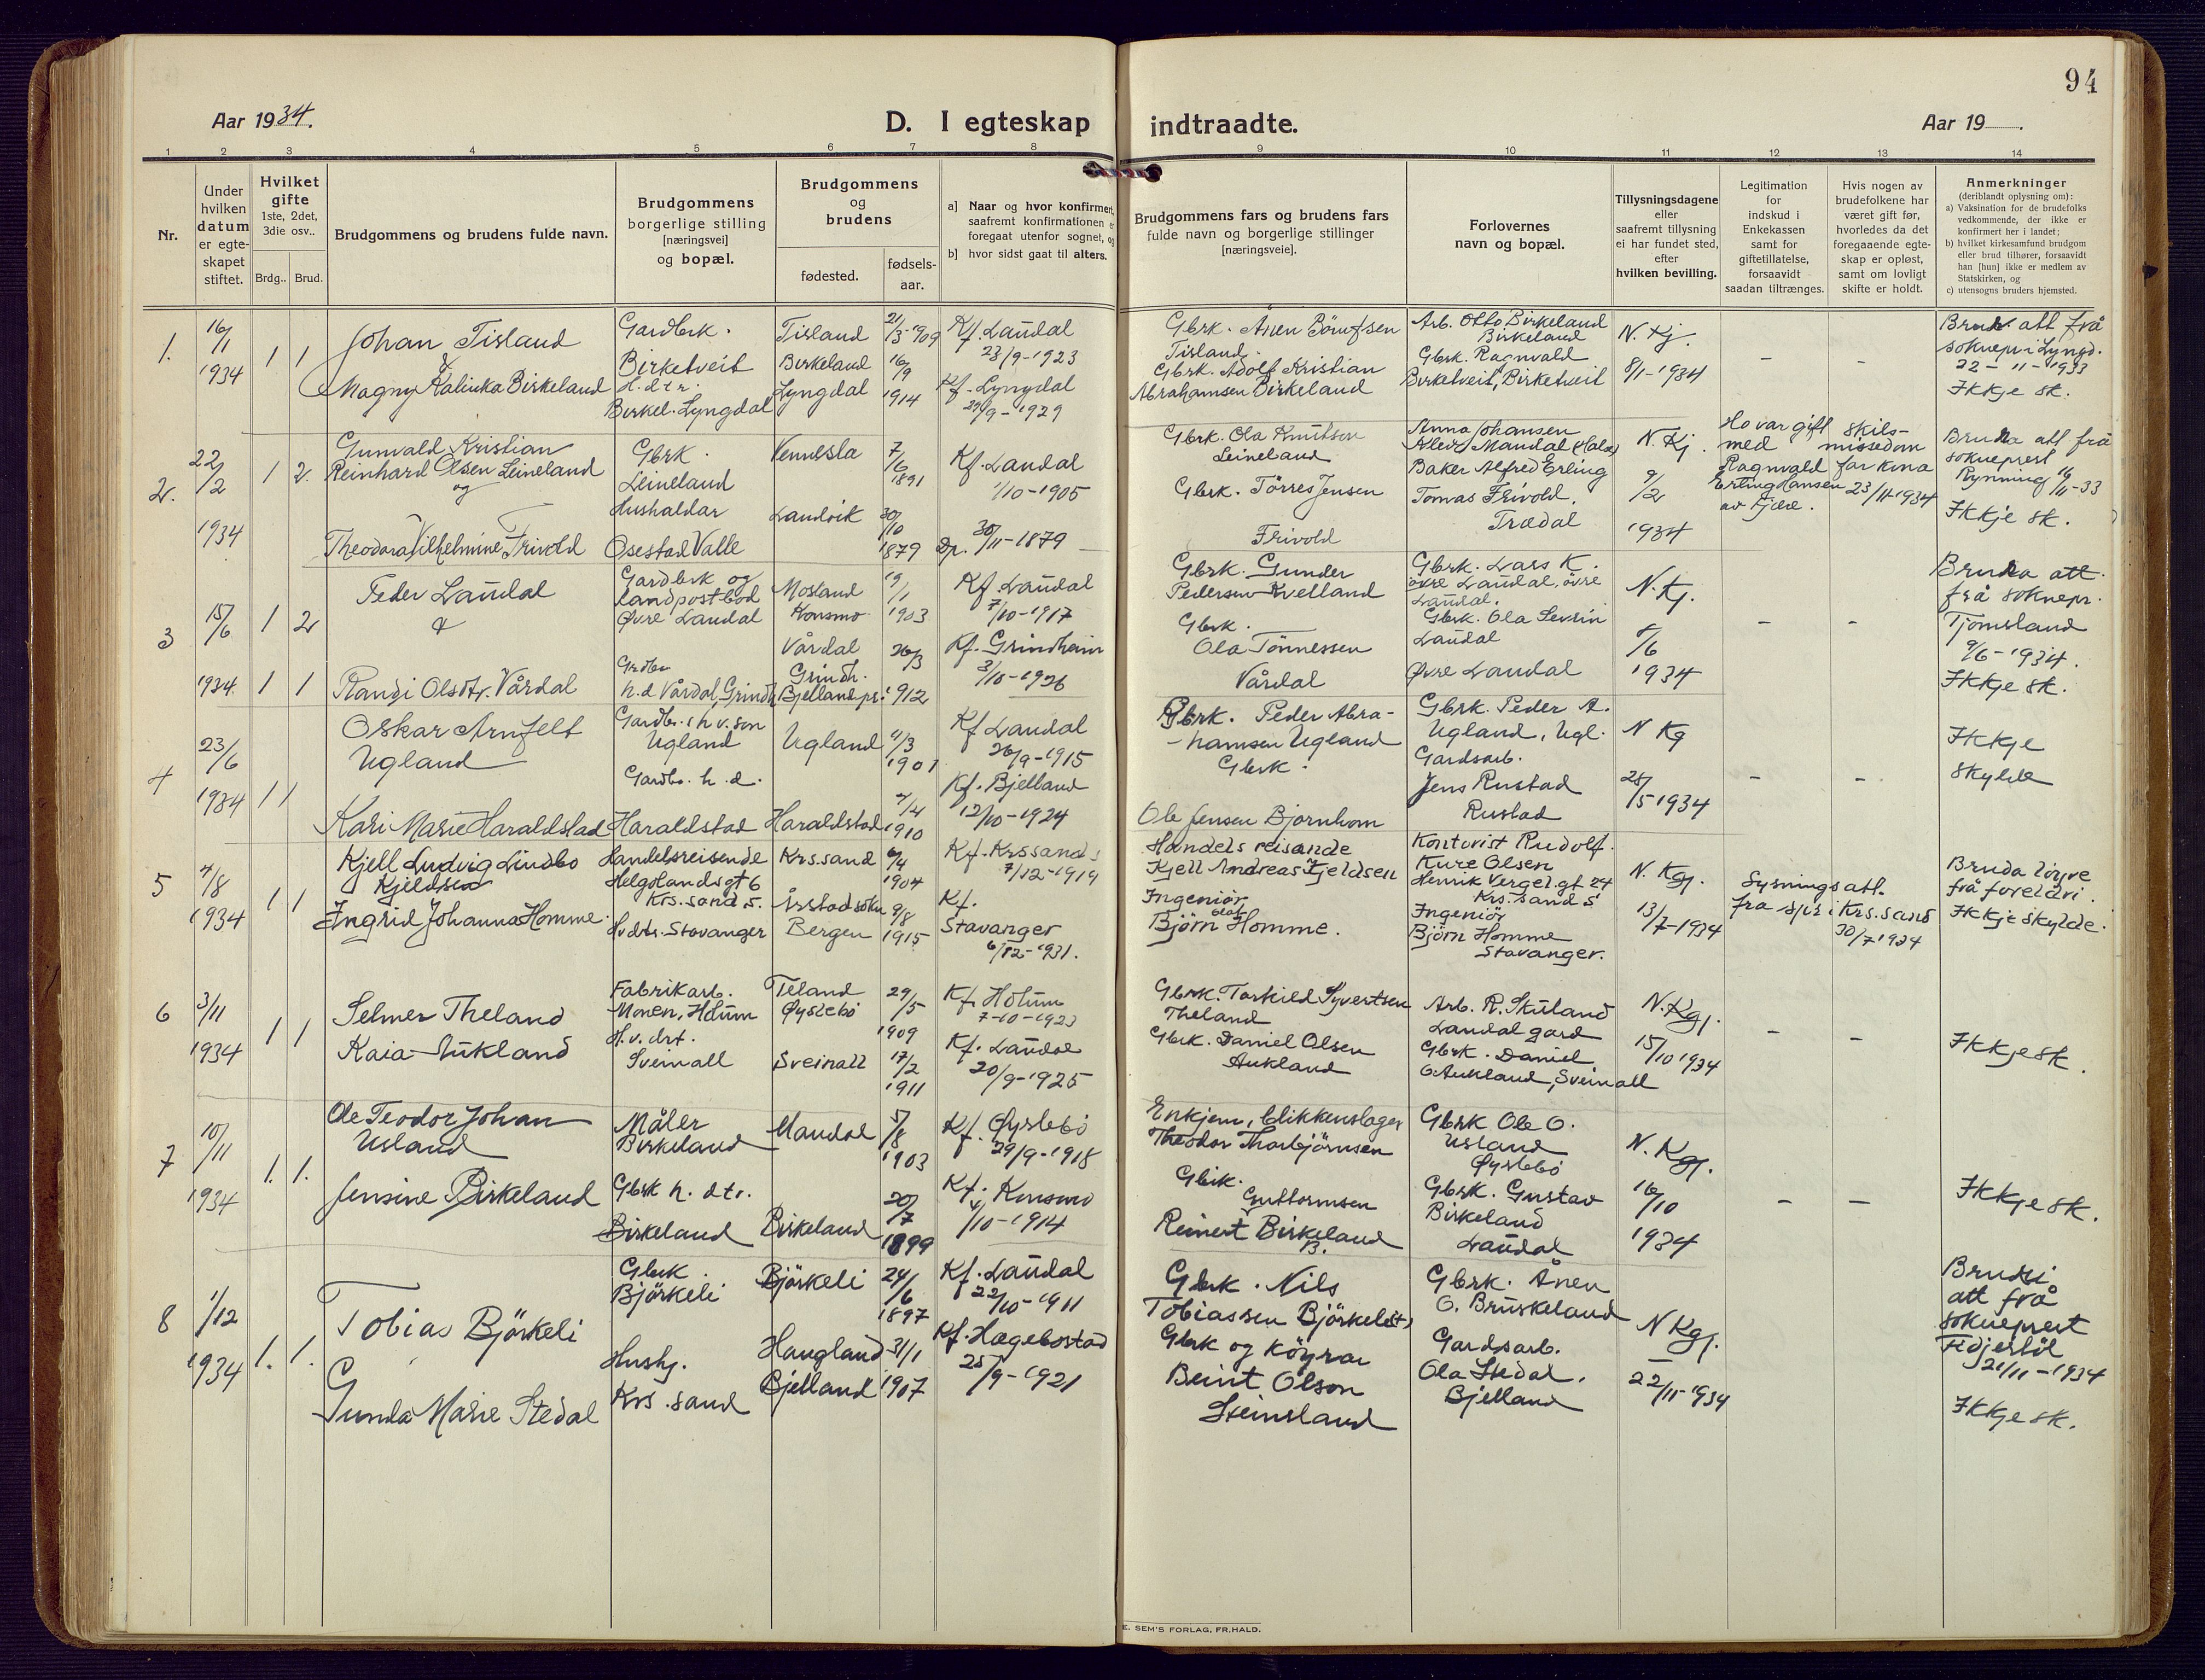 94
Aar 1934.
D. I egteskap
indtraadte.
Aar 19
1 2 3 4 5 6 7 8 9 10 11 12 13 14
Nr.
Under hvilken datum er egteskapet stiftet.
Hvilket gifte 1ste, 2det, 3die osv..
Brdg.. Brud.
Brudgommens og brudens fulde navn.
Brudgommens borgerlige stilling [næringsvei] og bopæl.
Brudgommens og brudens
fødested.
fødsels-aar.
a] Naar og hvor konfirmert, saafremt konfirmationen er foregaat utenfor sognet, og
b] hvor sidst gaat til alters.
Brudgommens fars og brudens fars fulde navn og borgerlige stillinger [næringsveie].
Forlovernes navn og bopæl.
Tillysningsdagene eller saafremt tillysning ei har fundet sted, efter hvilken bevilling.
Legitimation for indskud i Enkekassen samt for giftetillatelse, forsaavidt saadan tiltrænges.
Hvis nogen av brudefolkene har været gift før, hvorledes da det foregaaende egteskap er opløst, samt om lovligt skifte er holdt.
Anmerkninger
(deriblandt oplysning om):
a) Vaksination for de brudefolks vedkommende, der ikke er konfirmert her i landet;
b) hvilket kirkesamfund brudgom eller brud tilhører, forsaavidt han [hun] ikke er medlem av Statskirken, og
c) utensogns bruders hjemsted.
1.
16/1 1934
1 1
Johan Tisland
&
Magny Kalinka Birkeland
Gardbrk.
Birketveit
H.dtr.
Birkel. Lyngdal
Tisland
Birkeland
Lyngdal
21/3-1909
16/9 1914
Kf. Laudal
23/9-1923
Kf. Lyngdal
29/9-1929
Gbrk. Ånen
Tisland.
Gbrk. Adolf Kristian
Abrahamsen Birkeland
Arb. Otto Birkeland
Birkeland
Gbrk. Ragnvald
Birketveit, Birketveit
N. Kj.
8/1-1934
-
-
Brud. att frå
soknepr i Lyngd.
22-11-1933
Ikkje sk.
2.
22/2
1934
1 2.
Gunvald Kristian
Reinhard Olsen Leineland
og
Theodora Vilhelmine Frivold
Gbrk.
Leineland
Hushaldar
Osestad Valle
Vennesla
Landvik
7/6 1891
30/10 1879
Kf. Laudal
1/10-1905
Dp. 30/11-1879
Gbrk. Ola Knutson
Leineland
Gbrk. Tørres Jensen
Frivold
Anna Johansen
Mandal (Halse)
Baker Alfred Erling
Tomas Frivold.
Trædal
N. Kj.
9/2
1934
Ho var gift
med
Ragnvald
Erling Hansen
av Fjære.
skils-
missedom
far kona
23/11-1934
Bruda att frå
sokneprest
Rynning 16/11-33
Ikkje sk.
3
15/6
1934.
1 2
1 1
Peder Laudal
&
Randi Olsdtr. Vårdal
Gardbrk og
landpostbod
Øvre Laudal
Gardbr
h.d Vårdal, Grindh
Mosland
Konsmo
Vårdal
Grindh.
Bjelland pr.
19/1
1903
26/3
1912
Kf. Laudal
7/10-1917
Kf. Grindheim
3/10-1926
Gbrk. Gunder
Pedersen Kvelland
Gbrk.
Ola Tønnessen
Vårdal
Gbrk. Lars K.
øvre Laudal, øvre
Laudal.
Gbrk. Ola Severin
Laudal
Øvre Laudal
N. Kj.
5/6
1934
-
-
Bruda att.
frå soknepr.
Tjomsland
9/6-1934.
Ikkje sk.
4
23/6
1934
1 1
Oskar Arnfelt
Ugland
Kari Marie Haraldstad
Gardbr. h v. son
Ugland
Gardbr. h. d.
Haraldstad
Ugland
Haraldstad
4/3
1901
7/4
1910
Kf. Laudal
26/9-1915
Kf. Bjelland
12/10-1924
Gbrk. Peder Abra-
-hamsen Ugland
Gbrk.
Ole Jensen Bjørnhom
Gbrk. Peder A.
Ugland, Ugl.
Gardsarb.
Jens Rustad
Rustad
N Kg
28/5 1934
-
-
Ikkje
skylde
5
4/8
1934
1 1
Kjell Ludvig Lindbo
Kjeldsen
Ingrid Johanna Homme.
Handelsreisende
Helgolandsgt 6
Krs.sand S.
Hv.dtr. Stavanger
Krs.sand
Årstad sokn
Bergen
6/4
1904
9/8
1915
Kf. Krssand S
7/12-1919
Kf.
Stavanger
6/12-1931.
Handels reisande
Kjell Andreas Kjeldsen
Ingeniør
Olaf
Bjørn Homme.
Kontorist Rudolf.
Kure Olsen
Henrik Vergel. gt 24
Krs. sand S
Ingeniør
Bjørn Homme
Stavanger.
N. Kgj.
13/7-1934
Lysnings att.
fra spr i Krs.sand
30/7 1934
Bruda løyve
frå foreldri.
Ikkje skylde.
6
3/11
1934
1 1
Selmer Theland
Kaia Aukland
Fabrikarb.
Monen, Holum
H.v. drt.
Sveinall
Teland
Øyslebø
Sveinall
29/5
1909
17/2
1911
Kf. Holum
7-10-1923
Kf. Laudal
20/9-1925
Gbrk. Torkild Syvertsen
Theland
Gbrk. Daniel Olsen
Aukland
Arb. R. Skuland
Laudal gard
Gbrk. Daniel
O. Aukland, Sveinall
N. Kgj.
15/10 1934
-
-
Ikkje sk.
7
10/11
1934
1. 1.
Ole Teodor Johan
Usland
Jensine Birkeland
Måler
Birkeland
Gbrk h. dtr.
Birkeland
Mandal
Birkeland
5/8
1903
20/7
1899
Kf. Øyslebø
29/9-1918
Kf. Konsmo
4/10-1914
Enkjem, blikkenslager
Theodor Thorbjørnsen
Gbrk.
Guttormsen
Reinert Birkeland
B.
Gbrk Ole O.
Usland
Øyslebø
Gbrk. Gustav
Birkeland
Laudal
N. Kgj.
16/10
1934
-
-
Ikkje sk.
8
1/12
1934
1. 1.
Tobias Bjørkeli
Gunda Marie Stedal
Gbrk.
Bjørkeli
Hushj.
Krs. sand
Bjørkeli
Haugland
Bjelland
24/6
1897
31/1
1907
Kf. Laudal
22/10-1911
Kf. Hægebostad
25/9-1921
Gbrk. Nils
Tobiassen Bjørkeli
Gbrk og køyrar
Beint Olson
Steinsland
Gbrk. Ånen
O. Bruskeland
Gardsarb.
Ola Stedal.
Bjelland
N Kgj.
22/11-1934
Brudi
att frå
sokneprest
Fidjestøl
21/11-1934
Ikkje sk.
E. SEM'S FORLAG, FR.HALD.